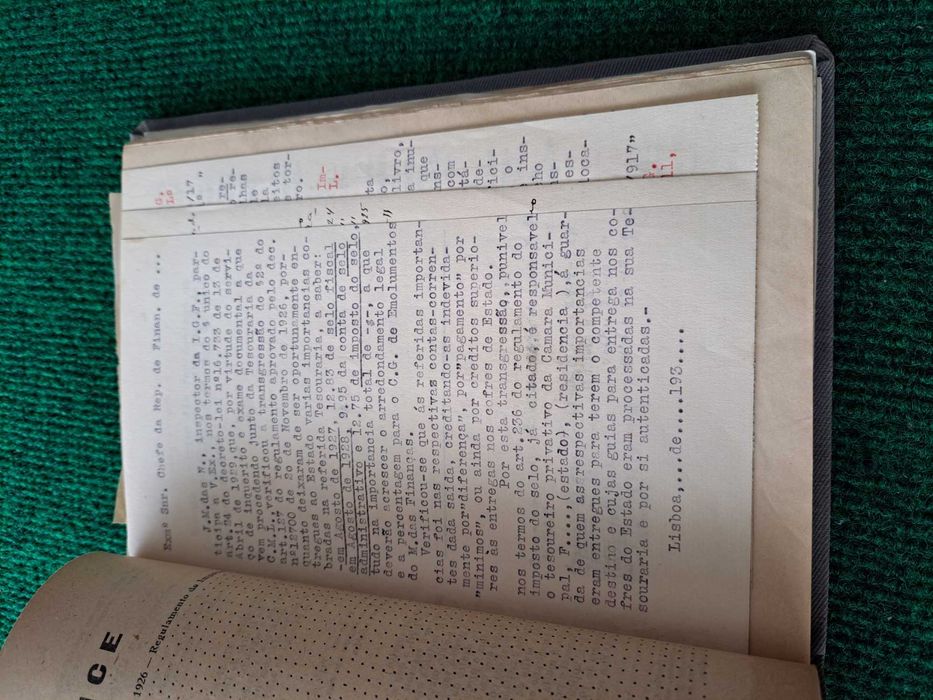 Exmº Snr. Chefe da Rep. de Finan. de ...
J.M.das N., inspector da I.G.F., par-
ticipa a V.Exª. nos termos do § unico do
artº.2º do decreto-lei nº16.733 de 13 de
Abril de 1929,que, por virtude do servi-
ço de inquerito e exame documental a que
vem procedendo junto da Tesouraria da
C.M.L.,verificou a transgressão do §2º do
art.187 do regulamento aprovado pelo dec.
nº12700 de 20 de Novembro de 1926, por-
quanto deixaram de ser oportunamente en-
tregues ao Estado varias importancias co-
bradas na referida Tesouraria, a saber:
-em Agosto de 1927, 12.83 de selo fiscal
em Agosto de 1928, 9.95 da conta de selo
administrativo e 12.75 de imposto do selo,
tudo na importancia total de -$-, a que
deverão acrescer o arredondamento legal
e a percentagem para o C.G. de Emolumentos
do M.das Finanças.
Verificou-se que ás referidas importan-
cias foi nas respectivas contas-corren-
tes dada saida, creditando-as indevida-
mente por"diferenças", por"pagamento" por
"minimos", ou ainda por creditos superio-
res ás entregas nos cofres do Estado.
Por esta transgressão, punivel
nos termos do art.236 do regulamento do
imposto do selo, já citado, é responsavel
o tesoureiro privativo da Camara Munici-
pal, F....,(estado), (residencia),á guar-
da de quem as respectivas importancias
eram entregues para terem o competente
destino e cujas guias para entrega nos co-
fres do Estado eram processadas na sua Te-
souraria e por si autenticadas.-
Lisboa,...de.....193....
G.
Le
/17
"
re-
Fe-
lhas
le
la
eitos
tor-
ro.
Im-
L.
ta
o,
livro,
a imu-
que
ns-
com
tá-
de-
ici-
o
ins-
ho
ns-
es-
loca-
/917"
G.
l,
CE
1926 — Regulamento da